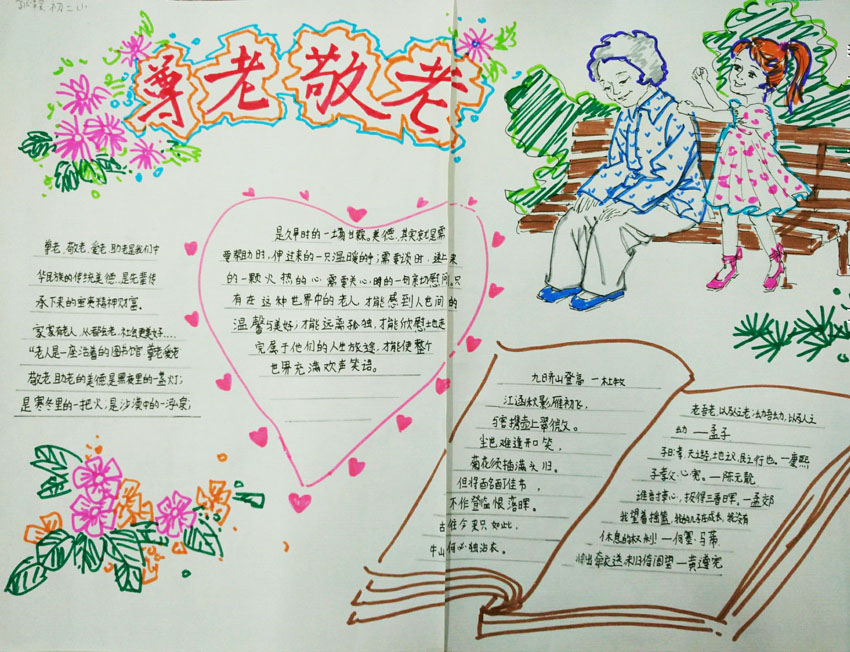 初二
尊老敬老
尊老、敬老、爱老、助老是我们中
华民族的传统美德,是先辈传
承下来的宝贵精神财富。
家家有老人,从善待老,社会更美好....
“老人是一座活着的图书馆 尊老爱老
敬老助老的美德是黑夜里的一盏灯;
是寒冬里的一把火;是沙漠中的一泓泉;
是久旱时的一场甘霖。美德,其实就是需
要帮助时,伸过来的一只温暖的手;需要谈时,递上来
的一颗火热的心;需要关心时的一句亲切慰问。只
有在这种世界中的老人,才能感到人世间的
温馨与美好;才能远离孤独,才能欣慰地走
完属于他们的人生旅途,才能使整个
世界充满欢声笑语。
九日齐山登高 一杜牧
江涵秋影雁初飞,
与客携壶上翠微。
尘世难逢开口笑,
菊花须插满头归。
但将酩酊酬佳节,
不作登临恨落晖。
古往今来只如此,
牛山何必独沾衣。
老吾老,以及人之老;幼吾幼,以及人之
幼 —孟子
子曰:孝,天之经,地之义,民之行也。
子孝父心宽。—陈元靓
谁言寸草心,报得三春晖。—孟郊
休息的权利!